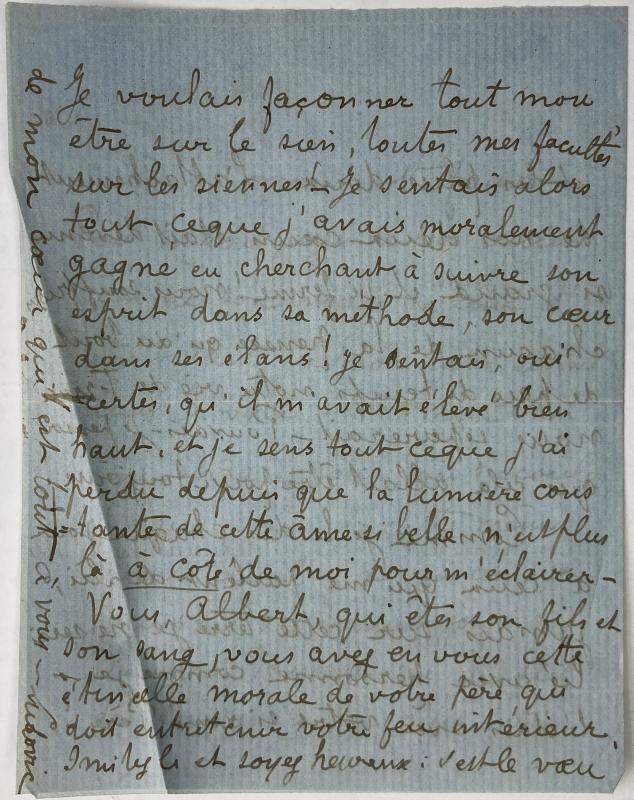 Je voulais façonner tout mon
être sur le sien, toutes mes facultés
sur les siennes – Je sentais alors
tout ce que j'avais moralement
gagné en cherchant à suivre son
esprit dans sa méthode, son cœur
dans ses élans! Je sentais, oui
certes, qu'il m'avait élevé bien
haut, et je sens tout ce que j'ai
perdu depuis que la lumière cons
=tante de cette âme si belle n'est plus
là à côté de moi pour m'éclairer –
Vous, Albert, qui êtes son fils et
son sang, vous avez en vous cette
étincelle morale de votre père qui
doit entretenir votre feu intérieur.
Imitez le et soyez heureux : c'est le vœu
de mon cœur qui est tout à vous –